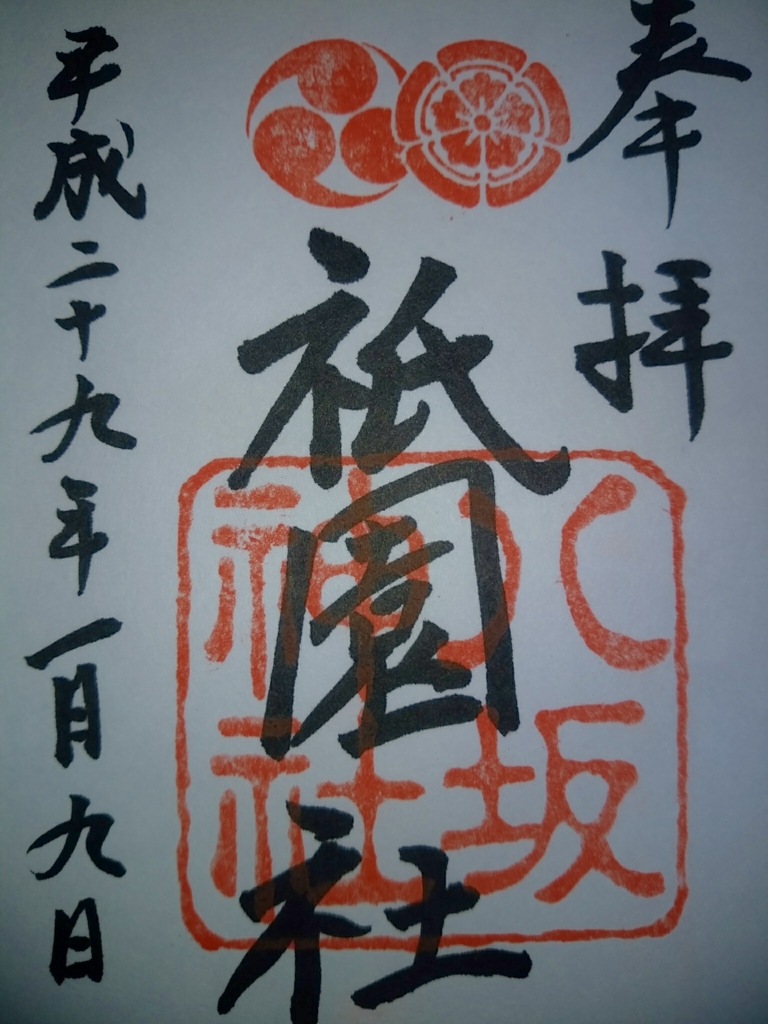 奉拝
祇園社
八坂神社
平成二十九年一月九日